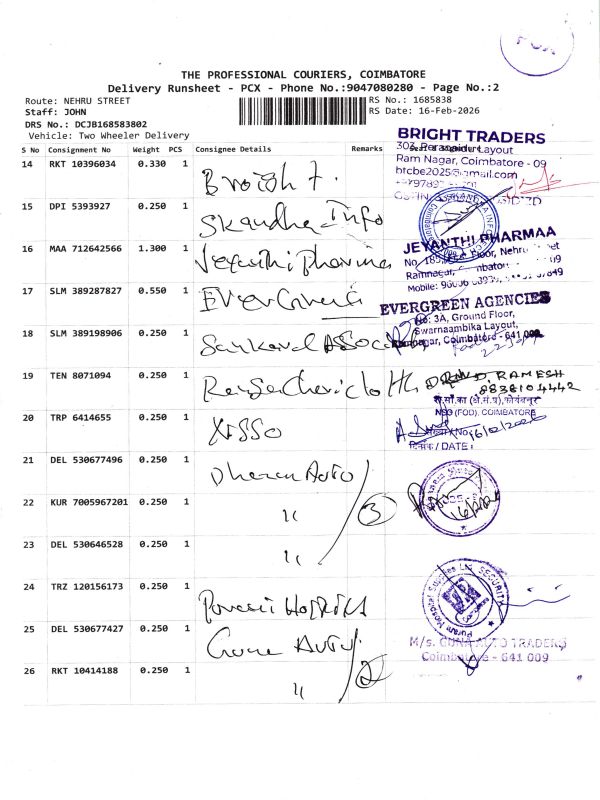 PCX
THE PROFESSIONAL COURIERS, COIMBATORE
Delivery Runsheet - PCX - Phone No.:9047080280 - Page No.:2
Route: NEHRU STREET
RS No.: 1685838
Staff: JOHN
RS Date: 16-Feb-2026
DRS No.: DCJB168583802
Vehicle: Two Wheeler Delivery
S No Consignment No Weight PCS Consignee Details Remarks
BRIGHT TRADERS
Layout
Ram Nagar, Coimbatore - 09
btcbe2025@gmail.com
14 RKT 10396034 0.330 1 Bright T.
15 DPI 5393927 0.250 1 Skandha Info
16 MAA 712642566 1.300 1 Jeyanthi Pharma
JEYANTHI PHARMAA
Floor, Nehru Street
Ramnagar, Coimbatore
Mobile:
17 SLM 389287827 0.550 1 Evergreen
EVERGREEN AGENCIES
No: 3A, Ground Floor,
Swarnaambika Layout,
Ramnagar, Coimbatore - 641 009
18 SLM 389198906 0.250 1
19 TEN 8071094 0.250 1
RAMESH
8838104442
20 TRP 6414655 0.250 1 NSSO
NSO (FOD), COIMBATORE
16/2/2026
दिनांक / DATE :
21 DEL 530677496 0.250 1 Dharan Auto
22 KUR 7005967201 0.250 1 " 3
23 DEL 530646528 0.250 1 "
24 TRZ 120156173 0.250 1
SECURITY
25 DEL 530677427 0.250 1 Guna Auto
M/s. GUNA AUTO TRADERS
Coimbatore - 641 009
26 RKT 10414188 0.250 1 " 2